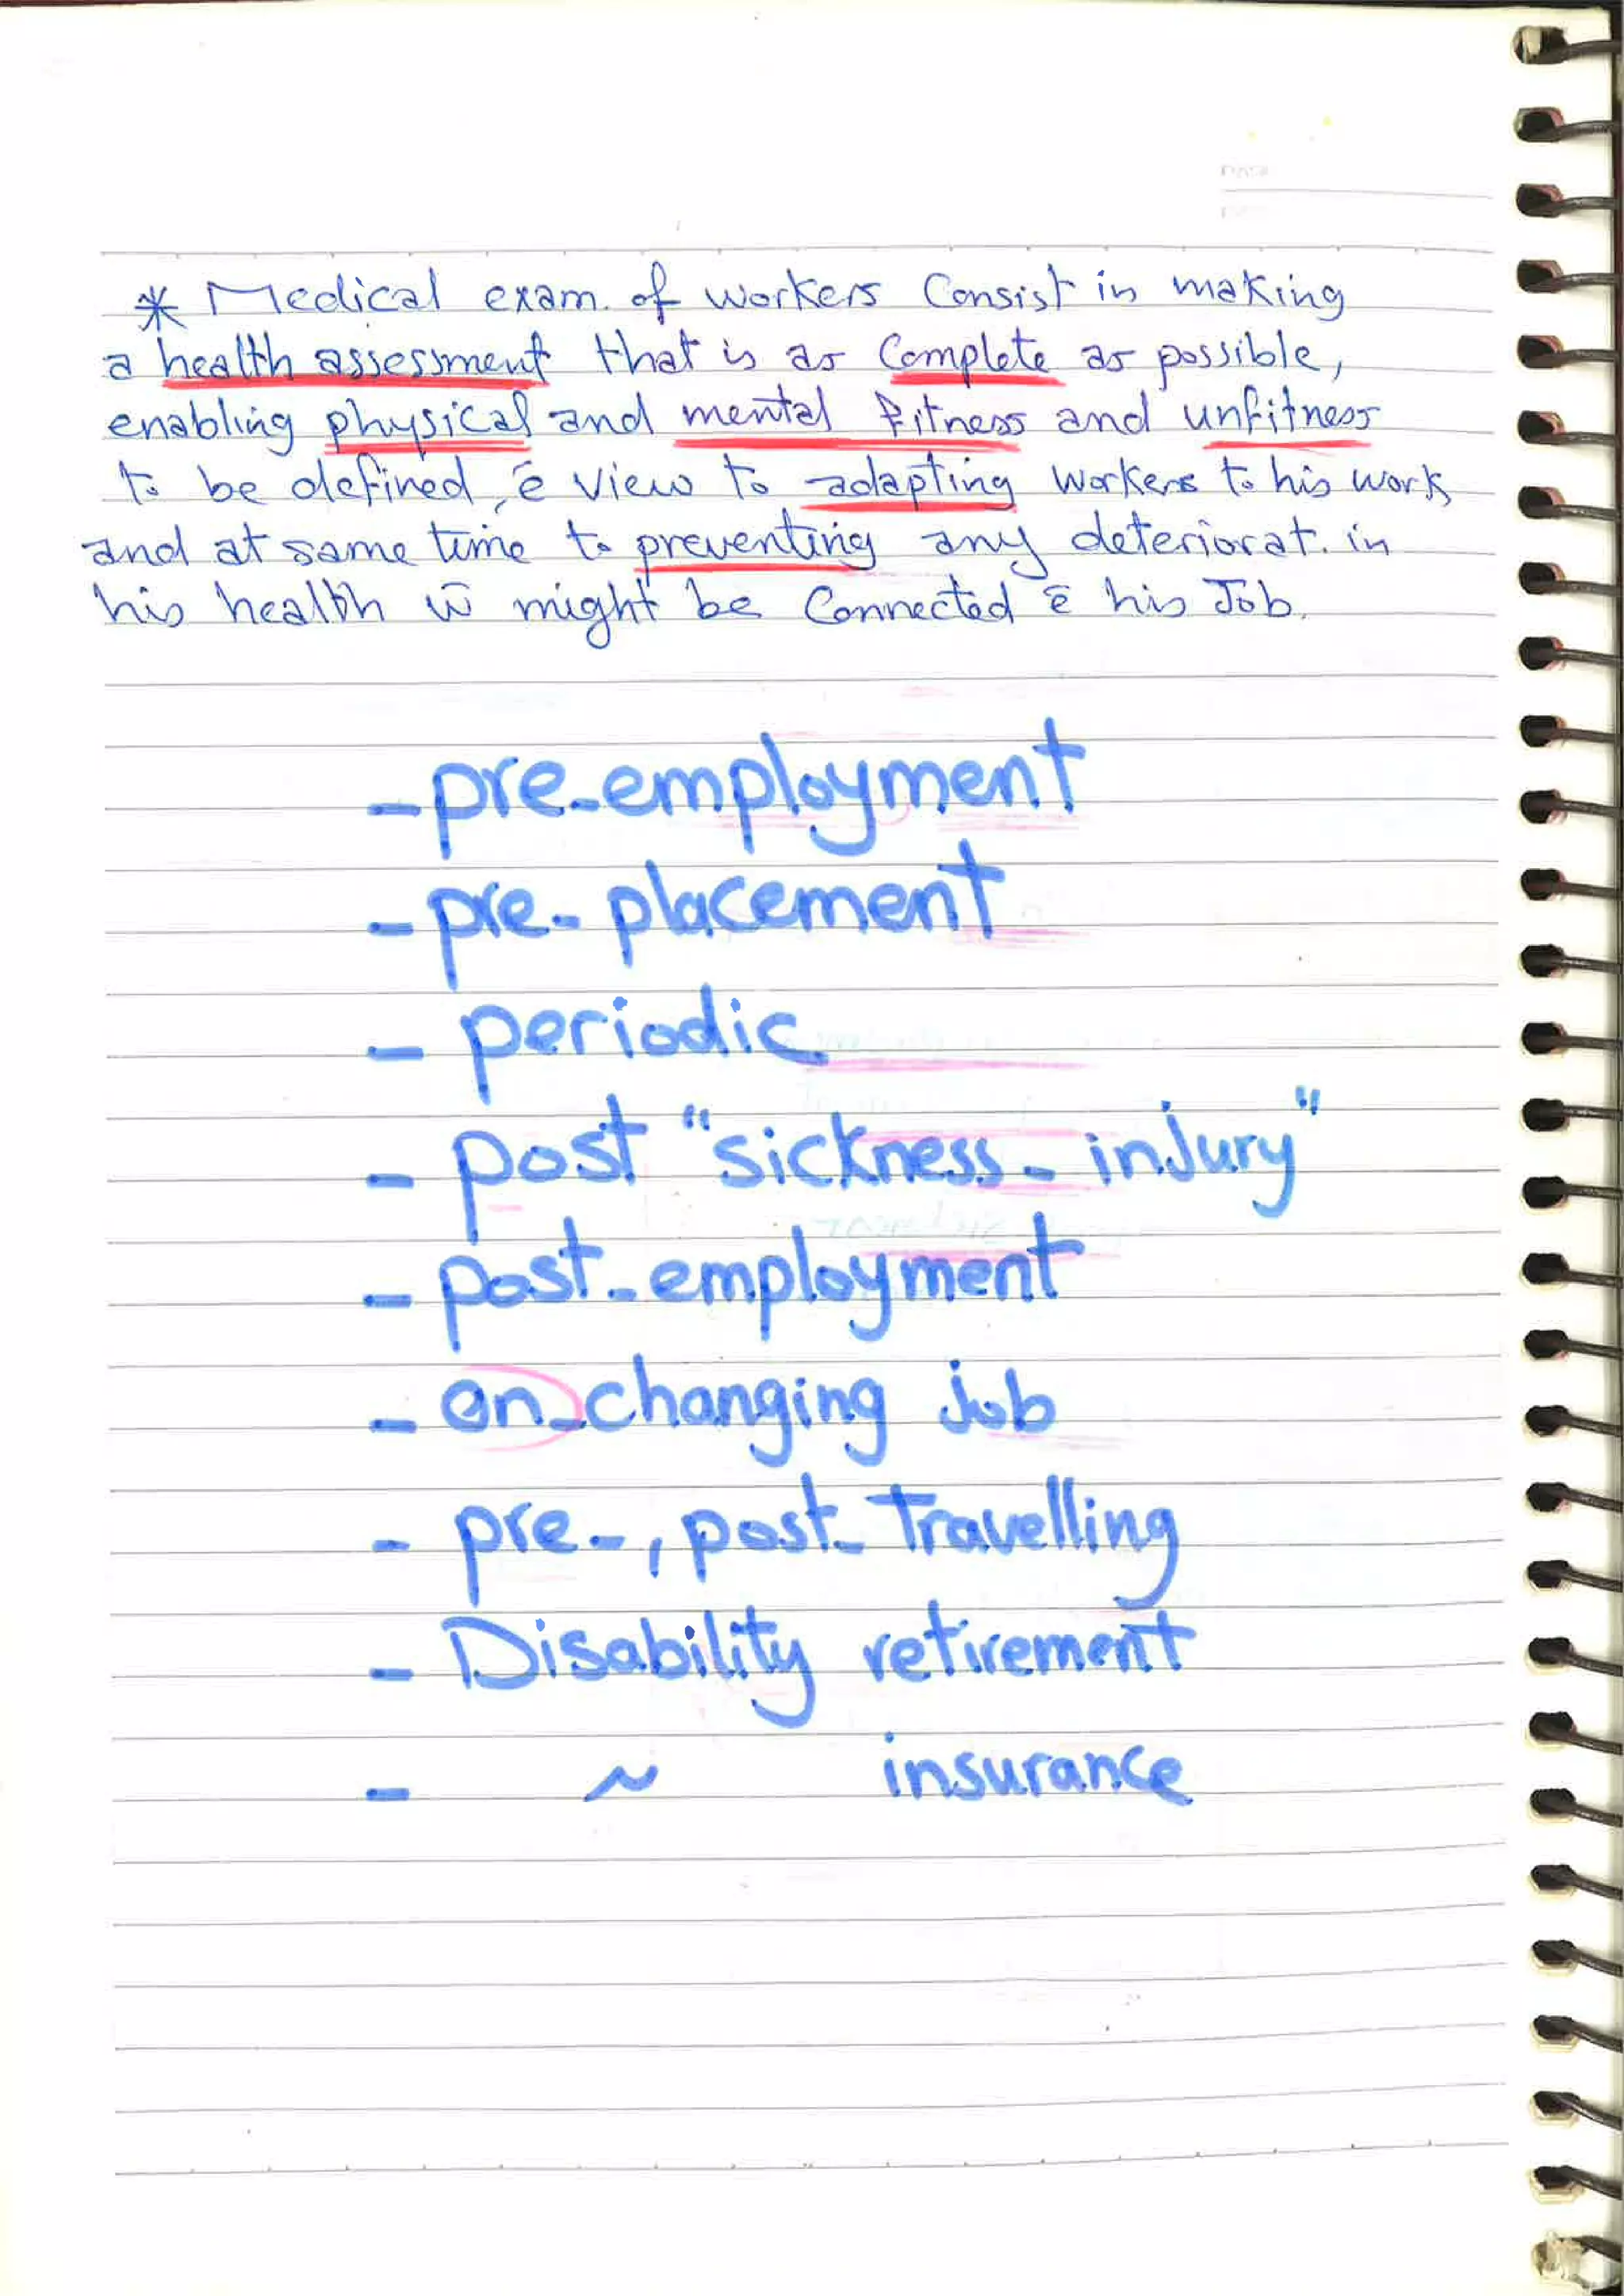 * Medical exam. of workers Consist in making
a health assessment that is as Complete as possible,
enabling physical and mental fitness and unfitness
to be defined, c̄ view to adapting workers to his work
and at same time to preventing any deteriorat. in
his health w̄ might be Connected c̄ his Job.
- pre-employment
- pre- placement
- periodic
- post "sickness - inJury"
- post-employment
- on-changing job
- pre-, post-Travelling
- Disability retirement
- ~ insurance